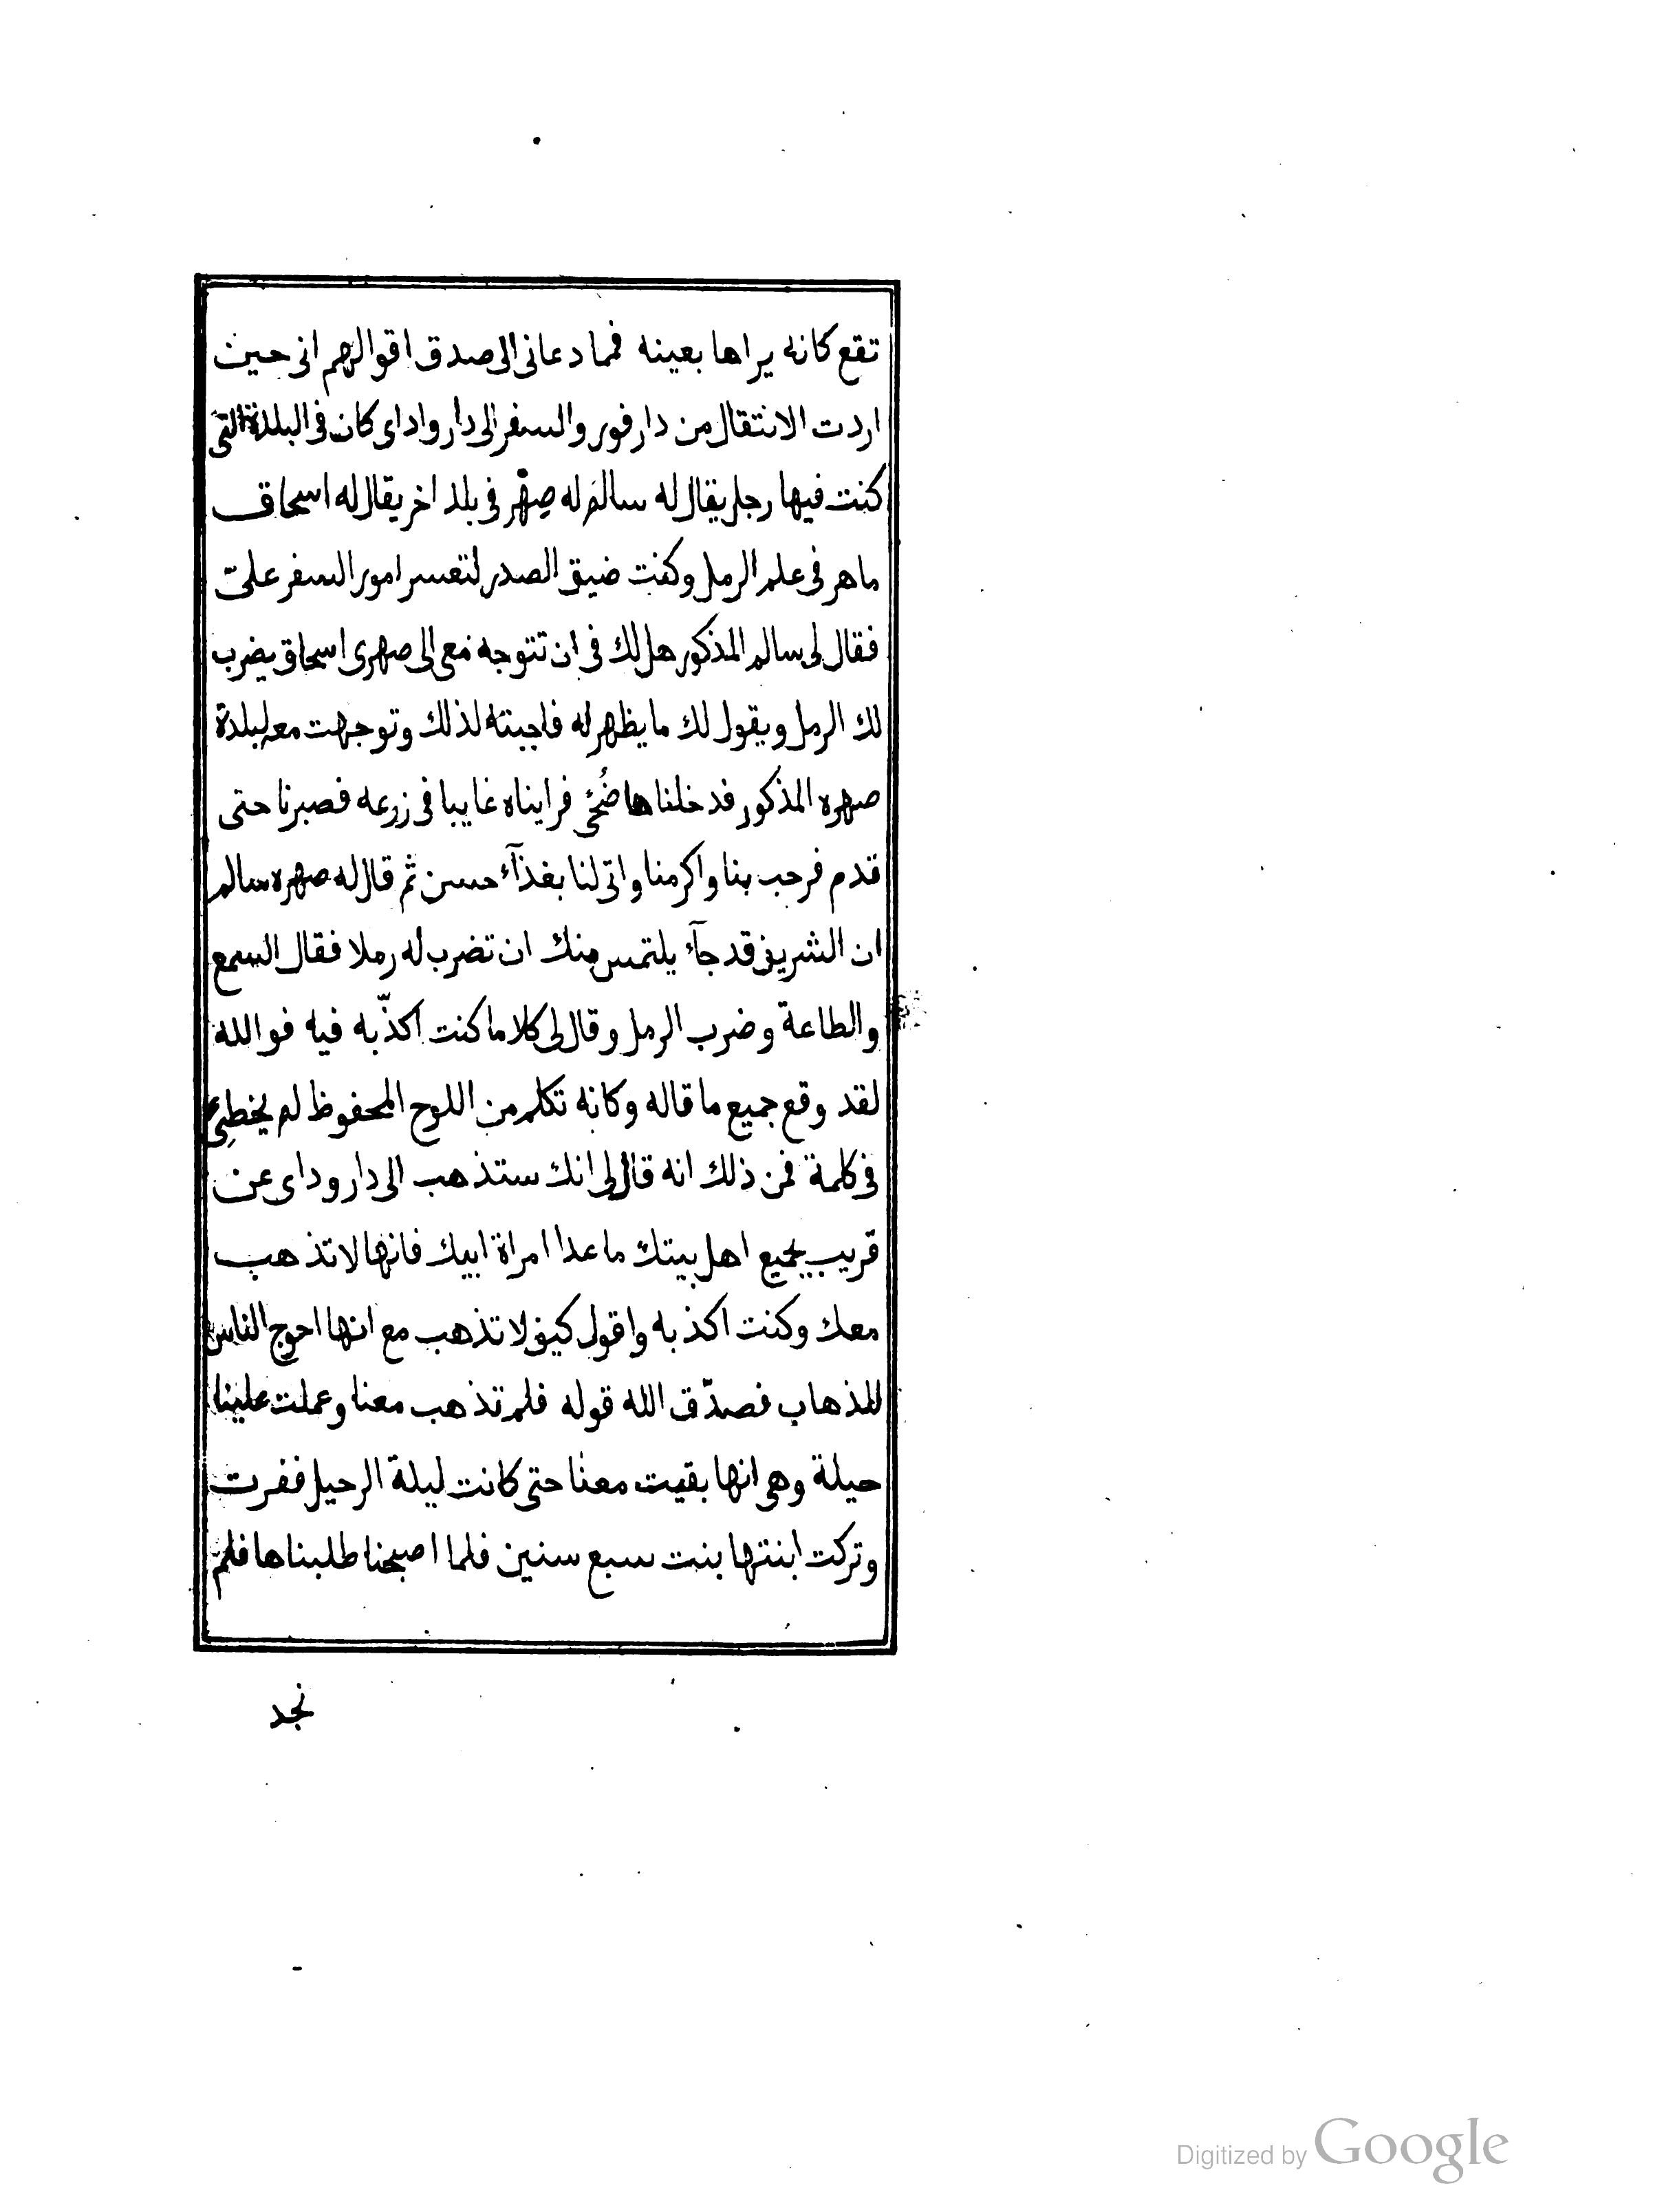 تقع كانه يراها بعينه فمما دعانى الى صدق اقوالهم انى حين
اردت الانتقال من دارفور والسفر الى دار واداى كان فى البلدة التى
كنت فيها رجل يقال له سالم له صِهْر فى بلد اخر يقال له اسحاق
ماهر فى علم الرمل وكنت ضيق الصدر لتعسر امور السفر علىّ
فقال لى سالم المذكور هل لك فى ان تتوجه معى الى صهرى اسحاق يضرب
لك الرمل ويقول لك ما يظهر له فاجبته لذلك وتوجهت معه لبلدة
صهره المذكور فدخلناها ضُحًى فرايناه غايبا فى زرعه فصبرنا حتى
قدم فرحب بنا واكرمنا واتى لنا بغذآء حسن ثم قال له صهره سالم
ان الشريف قد جآء يلتمس منك ان تضرب له رملا فقال السمع
والطاعة وضرب الرمل وقال لى كلاما كنت اكذّبه فيه فوالله
لقد وقع جميع ما قاله وكانه تكلم من اللوح المحفوظ لم يخطِئ
فى كلمة فمن ذلك انه قال لى انك ستذهب الى دار وداى عن
قريب بجميع اهل بيتك ما عدا امراة ابيك فانها لا تذهب
معك وكنت اكذبه واقول كيف لا تذهب مع انها احوج الناس
للذهاب فصدّق الله قوله فلم تذهب معنا وعملت علينا
حيلة وهى انها بقيت معنا حتى كانت ليلة الرحيل ففرت
وتركت ابنتها بنت سبع سنين فلما اصبحنا طلبناها فلم
نجد
Digitized by Google